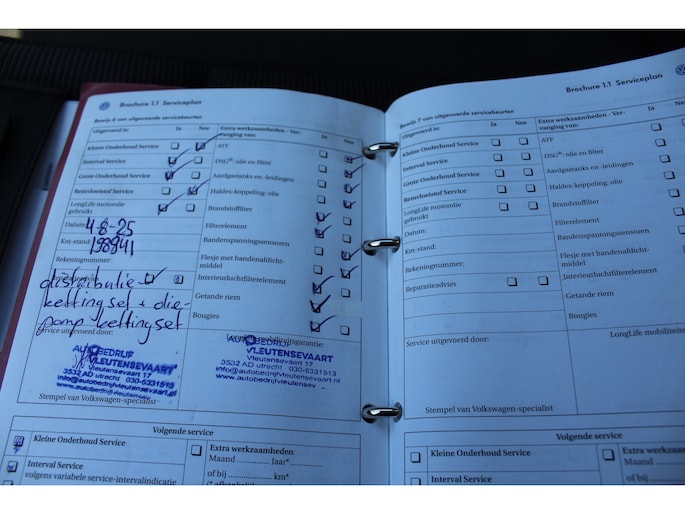 Brochure 1.1 Serviceplan
Bewijs 6 van uitgevoerde servicebeurten
Uitgevoerd te: Ja Nee
Kleine Onderhoud Service
Interval Service
Grote Onderhoud Service
Remvloeistof Service
LongLife motorolie
gebruikt
Datum: 4-8-25
Km-stand: 198941
Rekeningnummer:
distributie-
kettingset + olie-
pomp kettingset
Service uitgevoerd door:
AUTOBEDRIJF
VLEUTENSEVAART
Vleutensevaart 17
3532 AD utrecht 030-6331513
info@autobedrijfvleutensevaart.nl
www.autobedrijfvleutensevaart
Stempel van Volkswagen-specialist
Extra werkzaamheden - Ver-
vanging van: Ja Nee
ATF
DSG®: olie en filter
Aardgastanks en -leidingen
Haldex-koppeling; olie
Brandstoffilter
Filterelement
Bandenspanningssensoren
Flesje met bandenafdicht-
middel
Interieurluchtfilterelement
Getande riem
Bougies
mobiliteitsgarantie:
AUTOBEDRIJF
VLEUTENSEVAART
Vleutensevaart 17
3532 AD utrecht 030-6331513
info@autobedrijfvleutensevaart.nl
www.autobedrijfvleutensev
Volgende service
Kleine Onderhoud Service
Interval Service
volgens variabele service-intervalindicatie
Extra werkzaamheden
Maand ............ Jaar*
of bij ............ km*
Brochure 1.1 Serviceplan
Bewijs 7 van uitgevoerde servicebeurten
Uitgevoerd te: Ja Nee
Kleine Onderhoud Service
Interval Service
Grote Onderhoud Service
Remvloeistof Service
LongLife motorolie
gebruikt
Datum:
Km-stand:
Rekeningnummer:
Reparatieadvies
Service uitgevoerd door:
Stempel van Volkswagen-specialist
Extra werkzaamheden - Ver-
vanging van: Ja
ATF
DSG®: olie en filter
Aardgastanks en -leidingen
Haldex-koppeling; olie
Brandstoffilter
Filterelement
Bandenspanningssensoren
Flesje met bandenafdicht-
middel
Interieurluchtfilterelement
Getande riem
Bougies
LongLife mobiliteits
Volgende service
Kleine Onderhoud Service
Interval Service
Extra werkzaamheden
Maand
of bij